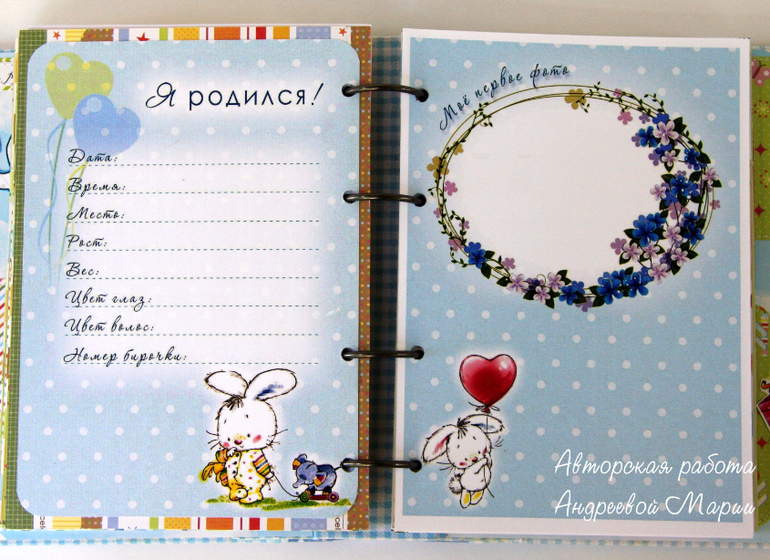 Я родился!
Дата:
Время:
Место:
Рост:
Вес:
Цвет глаз:
Цвет волос:
Номер бирочки:
Моё первое фото
Авторская работа
Андреевой Марии